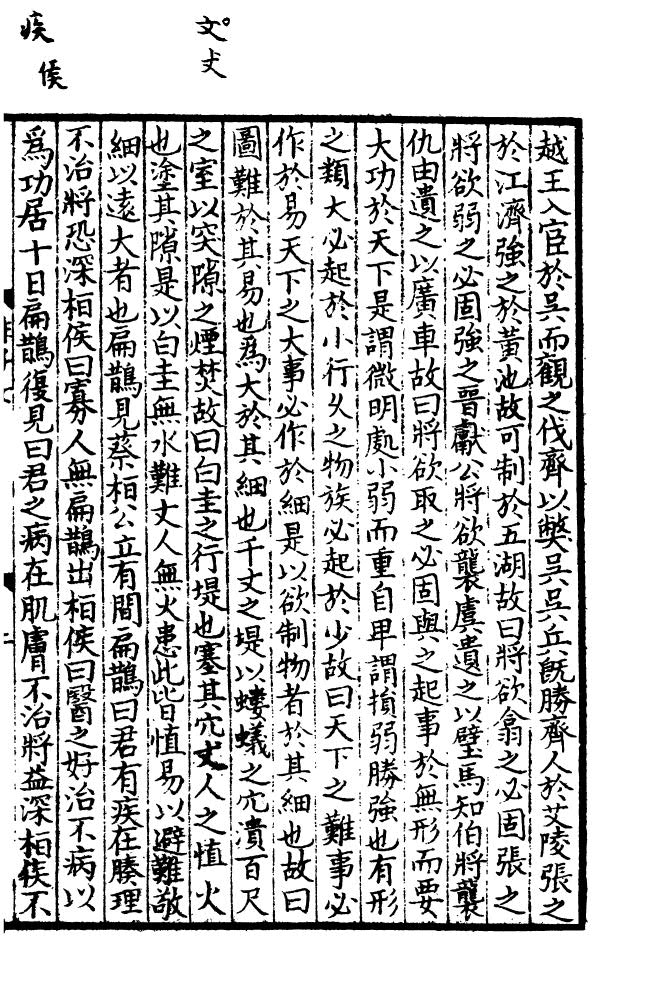 越王入宦於吳而觀之伐齊以獘吳吳兵旣勝齊人於艾陵張之
於江濟強之於黃池故可制於五湖故曰將欲翕之必固張之
將欲弱之必固強之晉獻公將欲襲虞遺之以璧馬知伯將襲
仇由遺之以廣車故曰將欲取之必固與之起事於無形而要
大功於天下是謂微明處小弱而重自卑謂損弱勝強也有形
之類大必起於小行久之物族必起於少故曰天下之難事必
作於易天下之大事必作於細是以欲制物者於其細也故曰
圖難於其易也爲大於其細也千丈之堤以螻蟻之穴潰百尺
之室以突隙之煙焚故曰白圭之行堤也塞其穴丈人之慎火
也塗其隙是以白圭無水難丈人無火患此皆慎易以避難敬
細以遠大者也扁鵲見蔡桓公立有間扁鵲曰君有疾在腠理
不治將恐深桓侯曰寡人無扁鵲出桓侯曰醫之好治不病以
爲功居十日扁鵲復見曰君之病在肌膚不治將益深桓侯不
文
丈
疾
侯